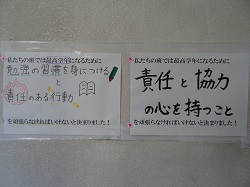 私たちの班では最高学年になるために
勉強の習慣を身につける
と
責任のある行動
を頑張らなければいけないと決まりました！
私たちの班では最高学年になるために
責任と協力
の心を持つこと
を頑張らなければいけないと決まりました！